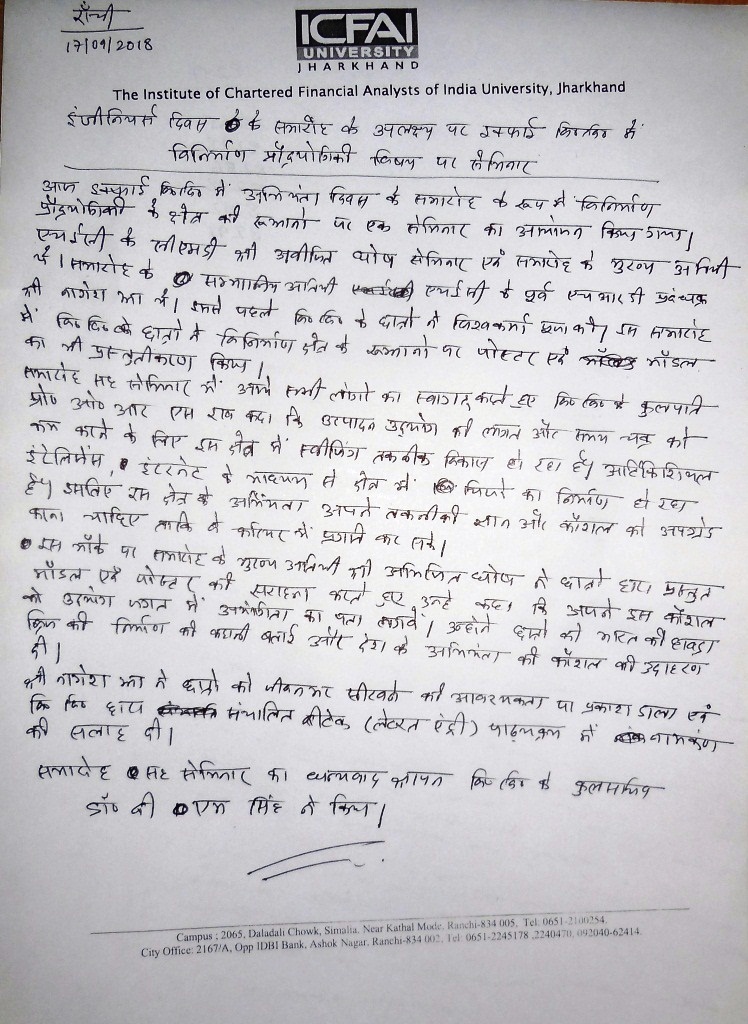 राँची
17/09/2018
ICFAI
UNIVERSITY
JHARKHAND
The Institute of Chartered Financial Analysts of India University, Jharkhand
इंजीनियर्स दिवस के समारोह के उपलक्ष्य पर इक्फाई वि०वि० में
विनिर्माण प्रौद्योगिकी विषय पर सेमिनार
आज इक्फाई वि०वि० में अभियंता दिवस के समारोह के रूप में विनिर्माण
प्रौद्योगिकी के क्षेत्र की रूझानों पर एक सेमिनार का आयोजन किया गया।
एचईसी के सीएमडी श्री अवीजित घोष सेमिनार एवं समारोह के मुख्य अतिथी
थें। समारोह के सम्मानीय अतिथी एचईसी के पूर्व एचआरडी प्रबंधक
श्री नागेश झा थें। इससे पहले वि०वि० के छात्रों ने विश्वकर्मा पूजा की। इस समारोह
में वि०वि० के छात्रों ने विनिर्माण क्षेत्र के रूझानों पर पोस्टर एवं मॉडल
का भी प्रस्तुतीकरण किया।
समारोह सह सेमिनार में आये सभी लोगों का स्वागत करते हुए वि०वि० के कुलपति
प्रो० ओ० आर एस राव कहा कि उत्पादन उद्योग की लागत और समय चक्र को
कम करने के लिए इस क्षेत्र में तकनीक विकास हो रहा है। आर्टिफिशियल
इंटेलिजेंस, इंटरनेट के माध्यम से क्षेत्र में का निर्माण हो रहा
है। इसलिए इस क्षेत्र के अभियंता अपने तकनीकी ज्ञान और कौशल को अपग्रेड
करना चाहिए ताकि वे करियर में प्रगति कर सकें।
इस मौके पर समारोह के मुख्य अतिथी श्री अभिजित घोष ने छात्रों द्वारा प्रस्तुत
मॉडल एवं पोस्टर की सराहना करते हुए उन्हें कहा कि अपने इस कौशल
को उद्योग जगत में का पता लगावें। उन्होंने छात्रों को भारत की हावड़ा
ब्रिज की निर्माण की कहानी बताई और देश के अभियंता की कौशल की उदाहरण
दी।
श्री नागेश झा ने छात्रों को जीवनभर सीखने की आवश्यकता पर प्रकाश डाला एवं
वि० वि० द्वारा संचालित बीटेक (लेटरल एंट्री) पाठ्यक्रम में नामांकण
की सलाह दी।
समारोह सह सेमिनार का धन्यवाद ज्ञापन वि० वि० के कुलसचिव
डॉ० बी एम सिंह ने किया।
Campus : 2065, Daladali Chowk, Simalia, Near Kathal Mode, Ranchi-834 005, Tel. 0651-2100254,
City Office: 2167/A, Opp IDBI Bank, Ashok Nagar, Ranchi-834 002, Tel: 0651-2245178 ,2240470, 092040-62414.